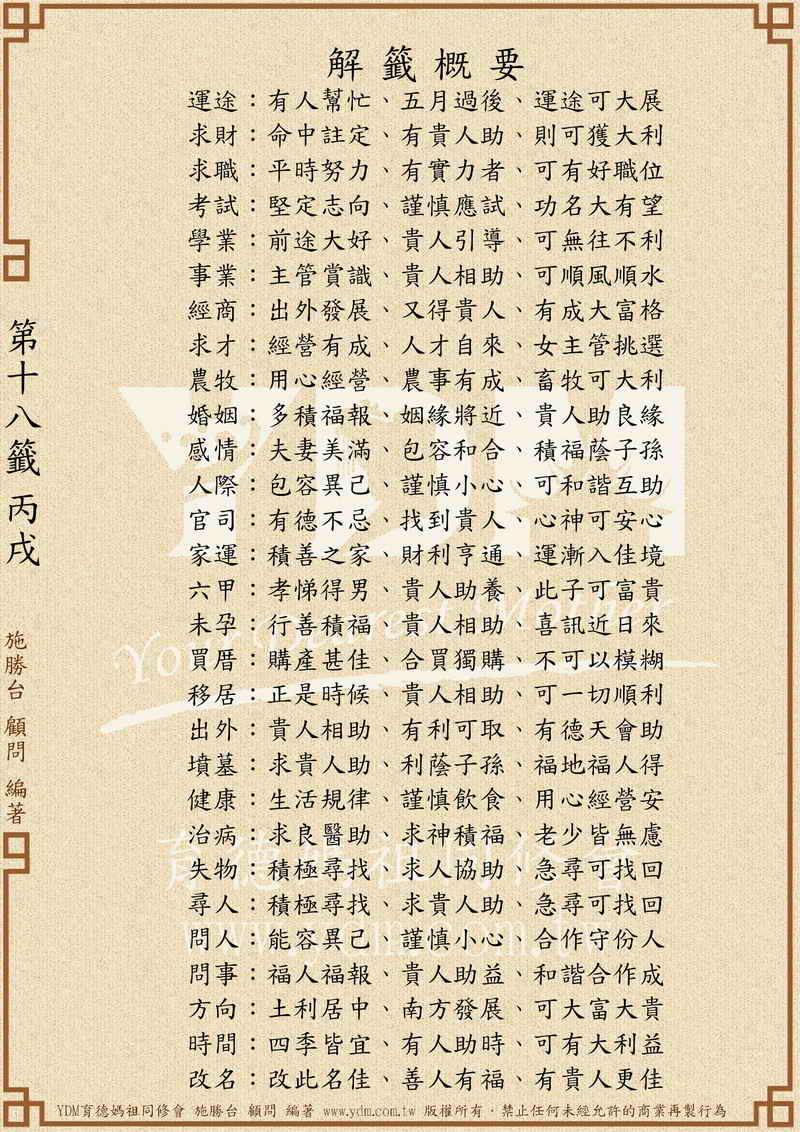 解籤概要
運途：有人幫忙、五月過後、運途可大展
求財：命中註定、有貴人助、則可獲大利
求職：平時努力、有實力者、可有好職位
考試：堅定志向、謹慎應試、功名大有望
學業：前途大好、貴人引導、可無往不利
事業：主管賞識、貴人相助、可順風順水
經商：出外發展、又得貴人、有成大富格
求才：經營有成、人才自來、女主管挑選
農牧：用心經營、農事有成、畜牧可大利
婚姻：多積福報、姻緣將近、貴人助良緣
感情：夫妻美滿、包容和合、積福蔭子孫
人際：包容異己、謹慎小心、可和諧互助
官司：有德不忌、找到貴人、心神可安心
家運：積善之家、財利亨通、運漸入佳境
六甲：孝悌得男、貴人助養、此子可富貴
未孕：行善積福、貴人相助、喜訊近日來
買厝：購產甚佳、合買獨購、不可以模糊
移居：正是時候、貴人相助、可一切順利
出外：貴人相助、有利可取、有德天會助
墳墓：求貴人助、利蔭子孫、福地福人得
健康：生活規律、謹慎飲食、用心經營安
治病：求良醫助、求神積福、老少皆無慮
失物：積極尋找、求人協助、急尋可找回
尋人：積極尋找、求貴人助、急尋可找回
問人：能容異己、謹慎小心、合作守份人
問事：福人福報、貴人助益、和諧合作成
方向：土利居中、南方發展、可大富大貴
時間：四季皆宜、有人助時、可有大利益
改名：改此名佳、善人有福、有貴人更佳
第十八籤 丙戌
施勝台 顧問 編著
YDM
Your Dearest Mother
育德媽祖同修會
www.ydm.com.tw
YDM育德媽祖同修會 施勝台 顧問 編著 www.ydm.com.tw 版權所有，禁止任何未經允許的商業再製行為